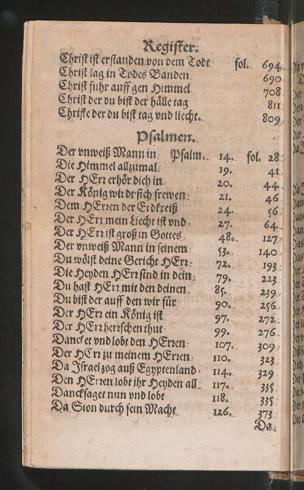 Register.
Christ ist erstanden von dem Todt fol. 694
Christ lag in Todes Banden 690
Christ fuhr auff gen Himmel 708
Christ der du bist der hälle tag 811
Christe der du bist tag vnd liecht. 809
Psalmen.
Der vnweiß Mann in Psalm. 14. fol. 28
Die Himmel allzumal 19. 41
Der HErr erhör dich in 20. 44
Der König wirdt sich frewen 21. 46
Dem HErren der Erdkreiß 24. 56
Der HErr mein Liecht ist vnd 27. 64
Der HErr ist groß in Gottes 48. 127
Der vnweiß Mann in seinem 53. 140
Du wölst deine Gericht HErr 72. 193
Die Heyden HErr sind in dein 79. 223
Du hast HErr mit den deinen 85. 239
Du bist der auff den wir für 90. 256
Der HErr ein König ist 97. 272
Der HErr herschen thut 99. 276
Dancket vnd lobt den HErren 107. 309
Der HErr zu meinem HErren 110. 323
Da Israel zog auß Egyptenland 114. 329
Den HErren lobt ihr Heyden all 117. 335
Dancksaget nun vnd lobt 118. 335
Da Sion durch sein Macht 126. 373
Da